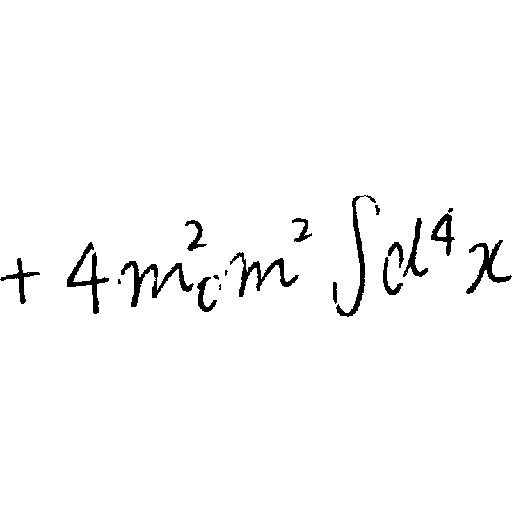 $+ 4 m_{c}^{2} m^{2} \int d^{4} x$